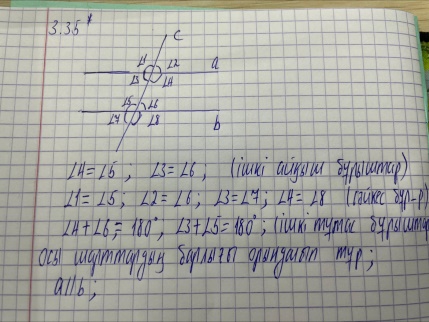 3.35*
c
∠1 ∠2 a
∠3 ∠4
∠5 ∠6
∠7 ∠8 b
∠4=∠5; ∠3=∠6; (ішкі айқыш бұрыштар)
∠1=∠5; ∠2=∠6; ∠3=∠7; ∠4=∠8 (сәйкес бұр-р)
∠4+∠6=180°, ∠3+∠5=180°; (ішкі тұтас бұрыштар
осы шарттардың барлығы орындалып тұр;
a||b;